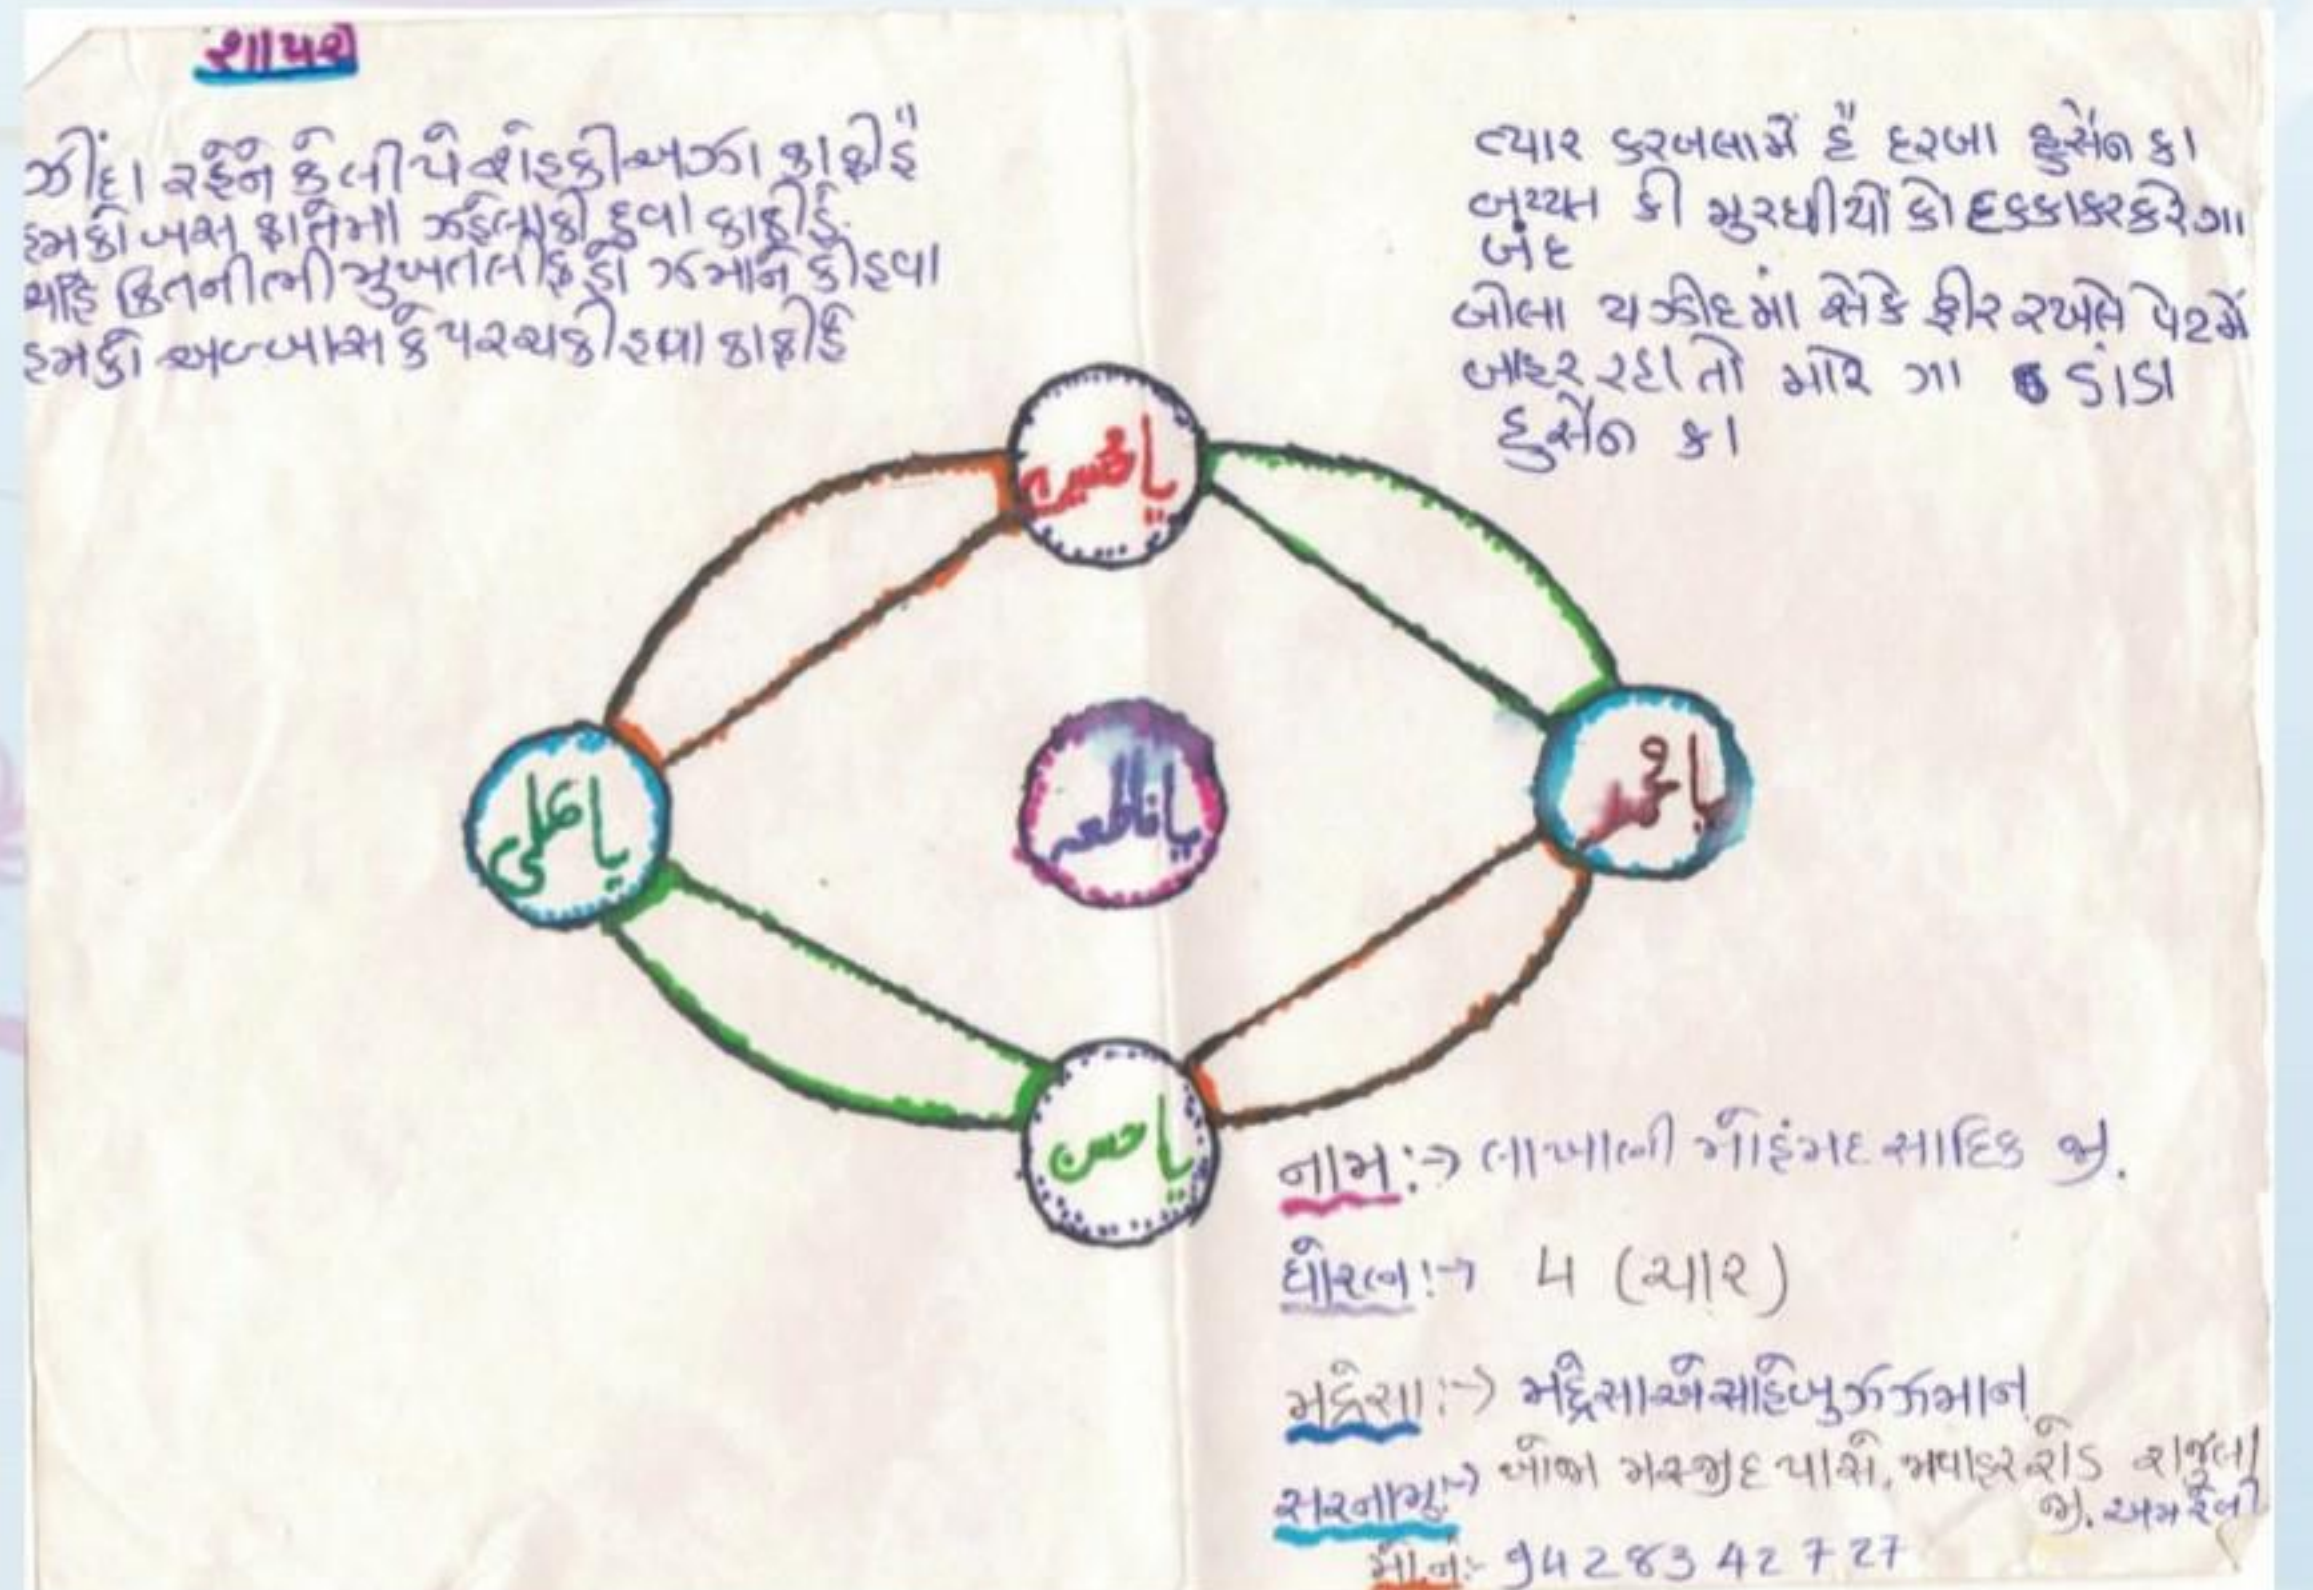 શાયરી
ઝીંદા રહેને કે લીયે શેહકી અઝા કાફીહૈ
હમકો બસ ફાતેમા ઝહેરાકી દુવા કાફીહૈ.
ચાહે કિતનીભી મુખતલીફ હો ઝમાને કી હવા
હમકો અબ્બાસ કે પરચમકી હવા કાફીહૈ
ત્યાર કરબલામેં હૈ દરબા હુસૈન કા
બચ્ચા કી મુરઘીયોં કો હકકાકર કરેગા
બંદ
બોલા યઝીદ માં સેકે ફીર રખલે પેટમેં
બાહર રહા તો મારે ગા ડાંડા
હુસૈન કા
ياحسين
يامحمد
يافاطمه
ياعلی
ياحسن
નામ:→ લાખાણી મોહંમદ સાદિક જી.
ધોરણ:→ 4 (ચાર)
મદ્રેસા:→ મદ્રેસાએ સાહેબુઝઝમાન
સરનામુ:→ ખોજા મસ્જીદ પાસે, જવાહર રોડ રાજુલા
જી. અમરેલી
મો.નં:- 9428342727